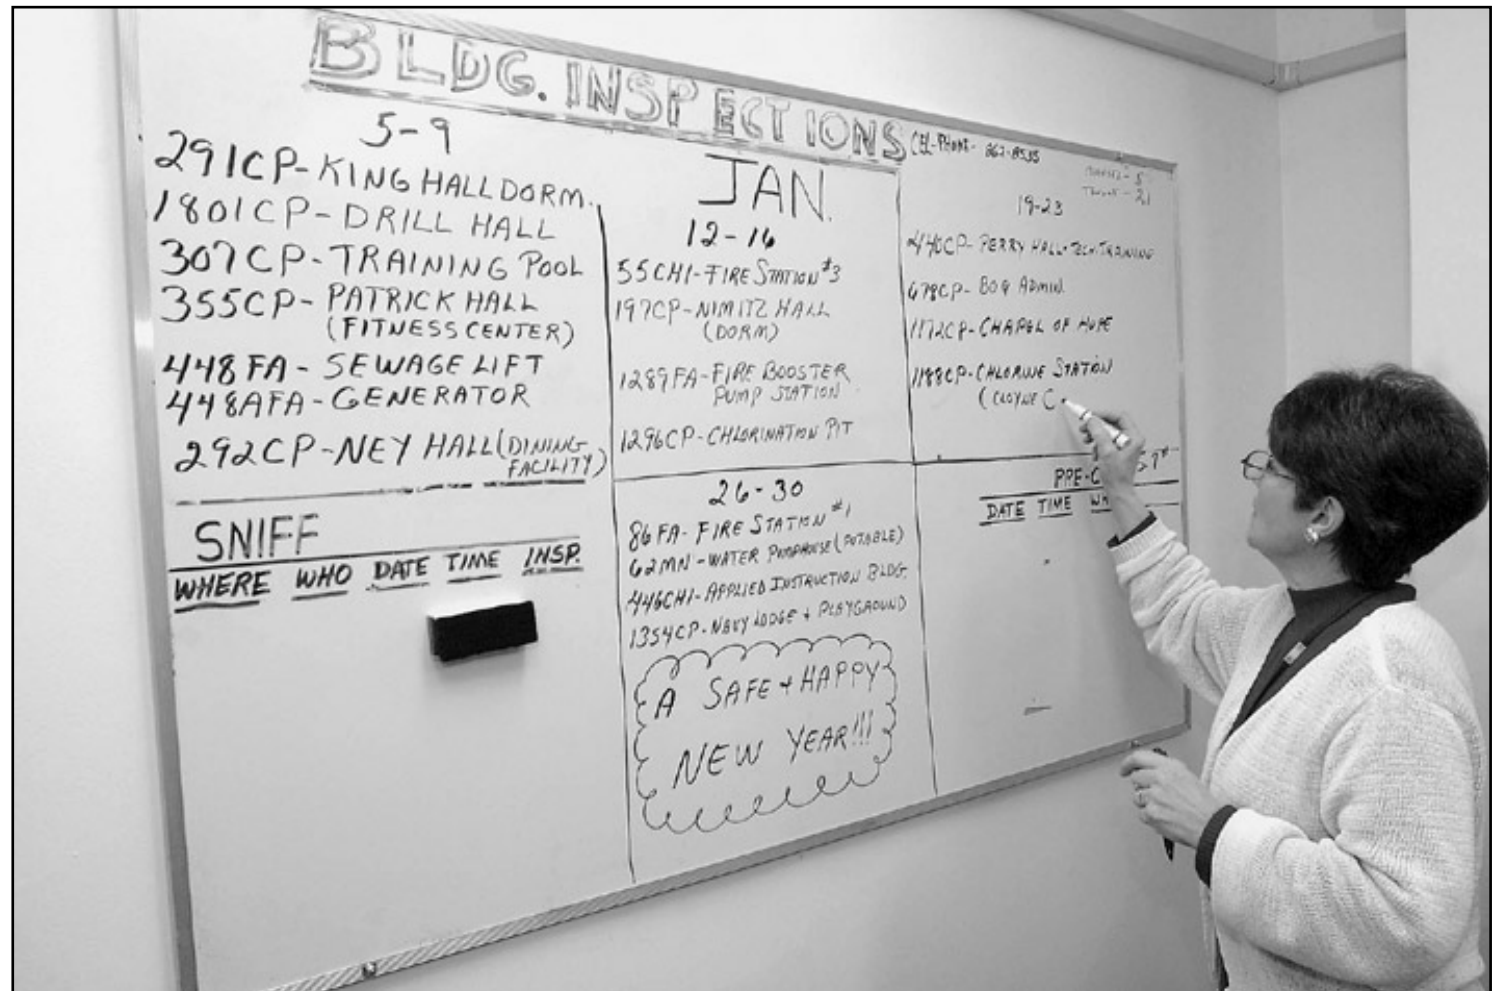 BLDG. INSPECTIONS
5-9
291CP-KING HALL DORM.
1801CP-DRILL HALL
307CP-TRAINING POOL
355CP-PATRICK HALL
(FITNESS CENTER)
448FA-SEWAGE LIFT
448AFA-GENERATOR
292CP-NEY HALL (DINING
FACILITY)
SNIFF
WHERE WHO DATE TIME INSP.
JAN.
12-16
55CHI-FIRE STATION #3
197CP-NIMITZ HALL
(DORM)
1289FA-FIRE BOOSTER
PUMP STATION
1296CP-CHLORINATION PIT
26-30
86FA-FIRE STATION #1
62MN-WATER PUMPHOUSE (POTABLE)
446CHI-APPLIED INSTRUCTION BLDG.
1354CP-NAVY LODGE + PLAYGROUND
A SAFE + HAPPY
NEW YEAR!!!
CEL-PHONE- 262-8535
19-23
440CP-PERRY HALL-TECH-TRAINING
678CP-BOQ ADMIN.
1172CP-CHAPEL OF HOPE
1188CP-CHLORINE STATION
(CLOYNE C
DATE TIME